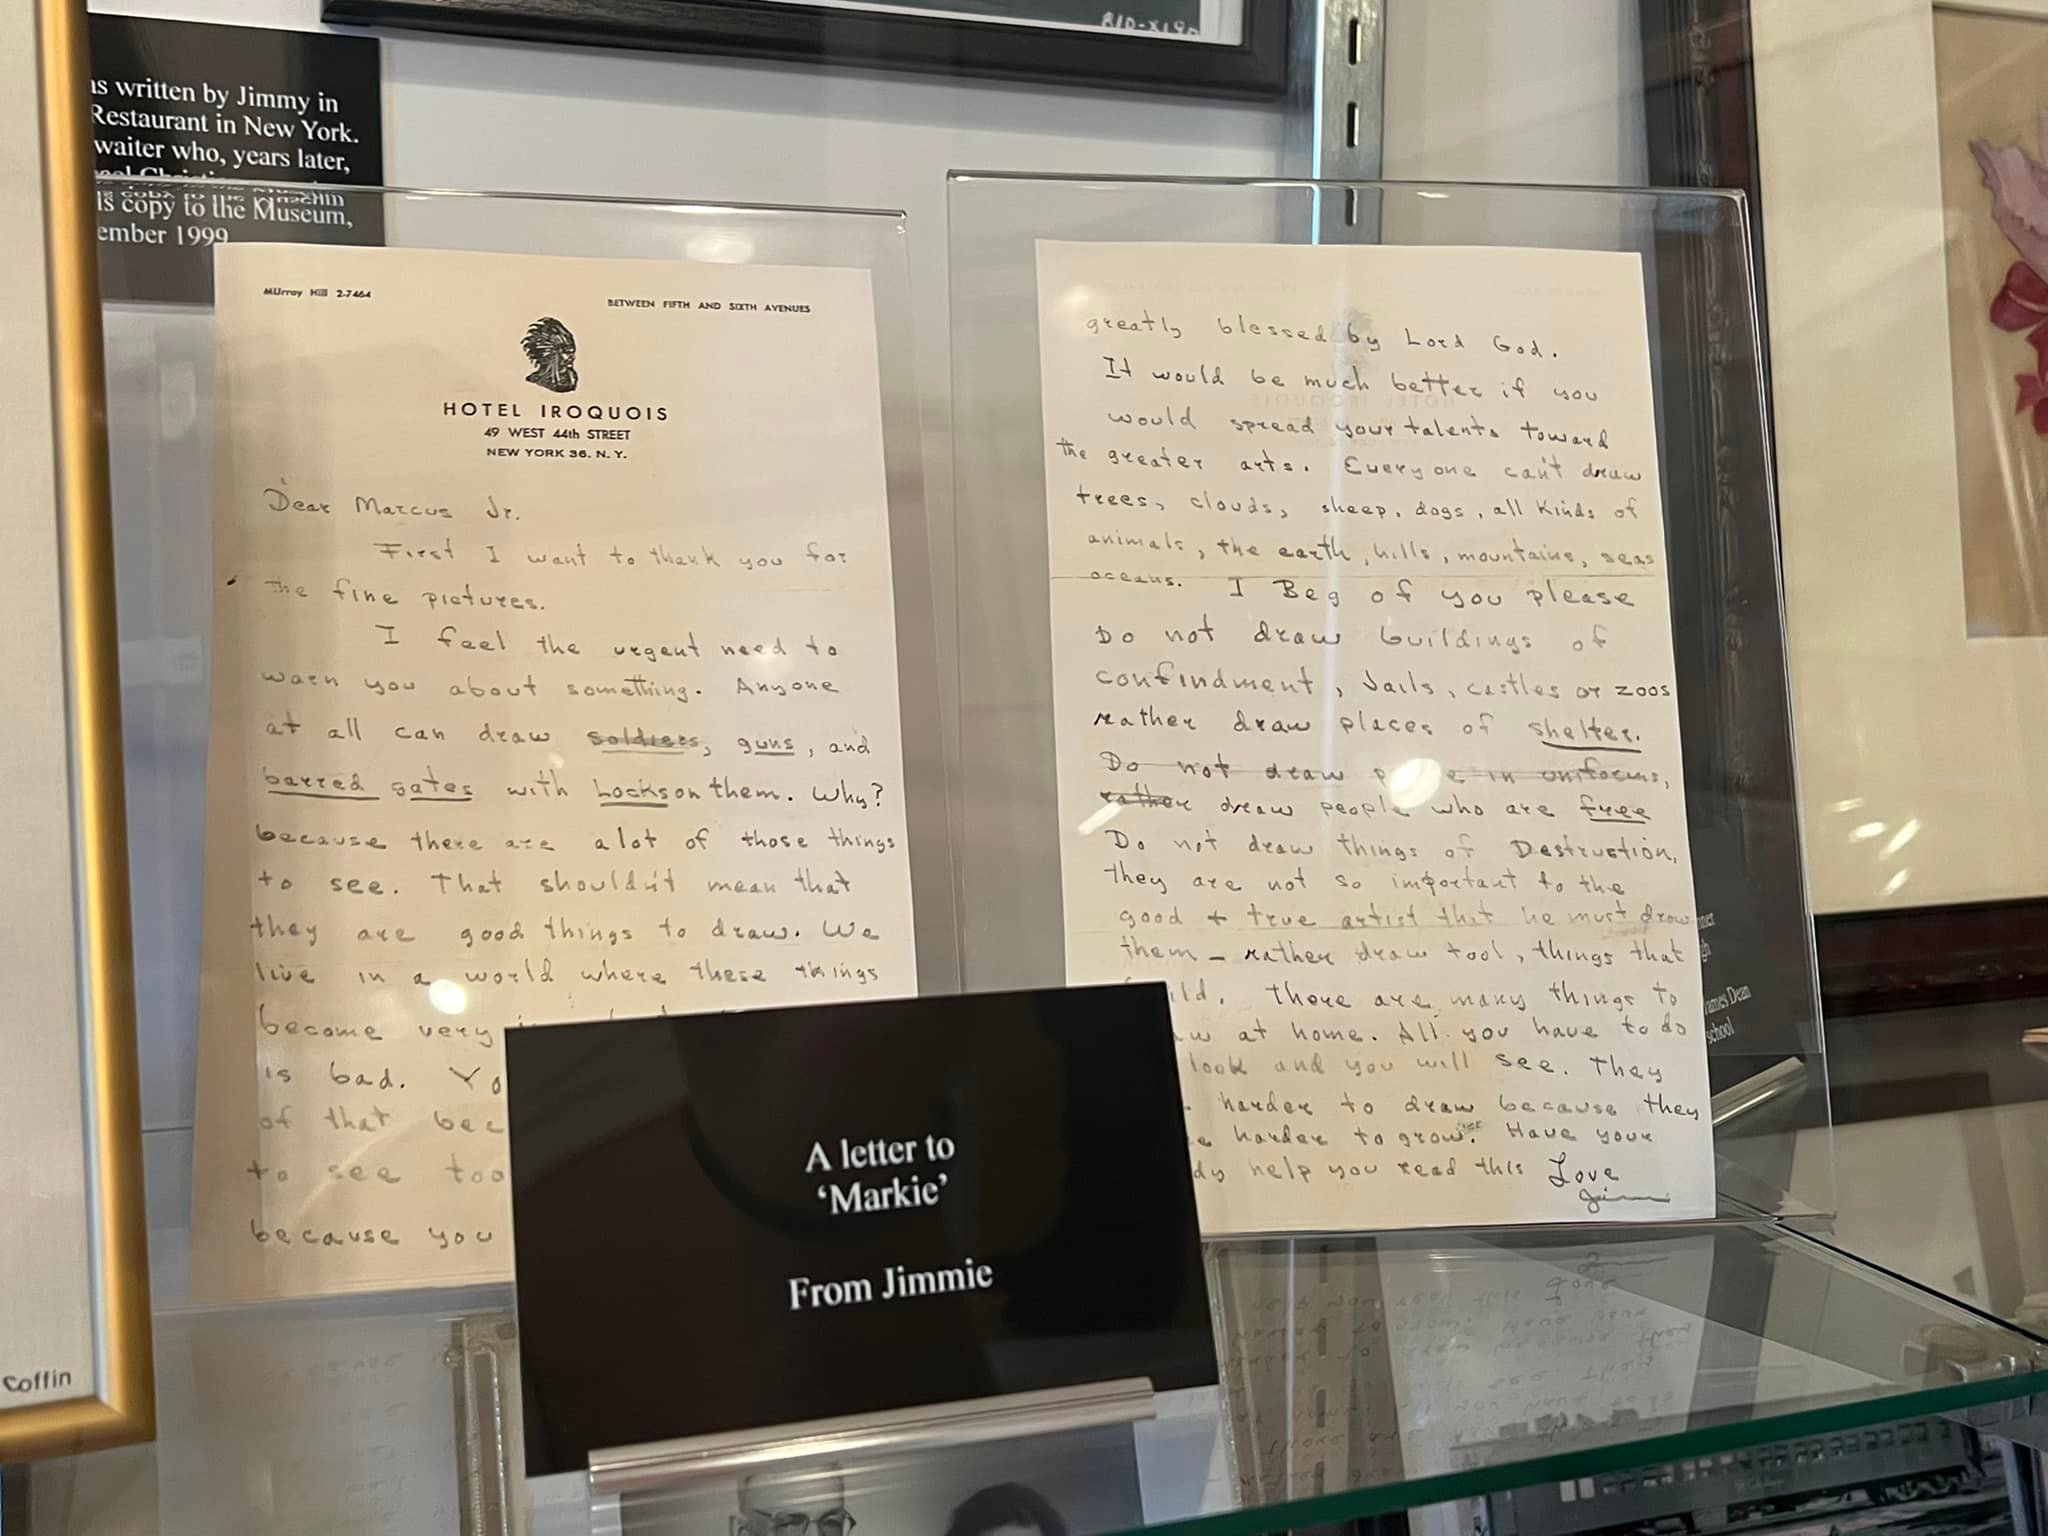 BID-X190
as written by Jimmy in
Restaurant in New York.
waiter who, years later,
is copy to the Museum,
ember 1999
MUrray Hill 2-7464
BETWEEN FIFTH AND SIXTH AVENUES
HOTEL IROQUOIS
49 WEST 44th STREET
NEW YORK 36. N. Y.
Dear Marcus Jr.
First I want to thank you for
the fine pictures.
I feel the urgent need to
warn you about something. Anyone
at all can draw soldiers, guns, and
barred gates with Locks on them. Why?
because there are a lot of those things
to see. That shouldn't mean that
they are good things to draw. We
live in a world where these things
become very
is bad. Yo
of that bec
to see too
because you
greatly blessed by Lord God.
It would be much better if you
would spread your talents toward
the greater arts. Everyone can't draw
trees, clouds, sheep, dogs, all kinds of
animals, the earth, hills, mountains, seas
oceans. I Beg of you please
Do not draw buildings of
confindment, Jails, castles or zoos
rather draw places of shelter.
Do not draw in uniforms,
rather draw people who are free
Do not draw things of Destruction,
they are not so important to the
good + true artist that he must draw
them - rather draw tool, things that
ild. There are many things to
aw at home. All you have to do
look and you will see. They
harder to draw because they
e harder to grow. Have your
dy help you read this Love
Jim
A letter to
'Markie'
From Jimmie
Coffin
ner
gh
James Dean
school